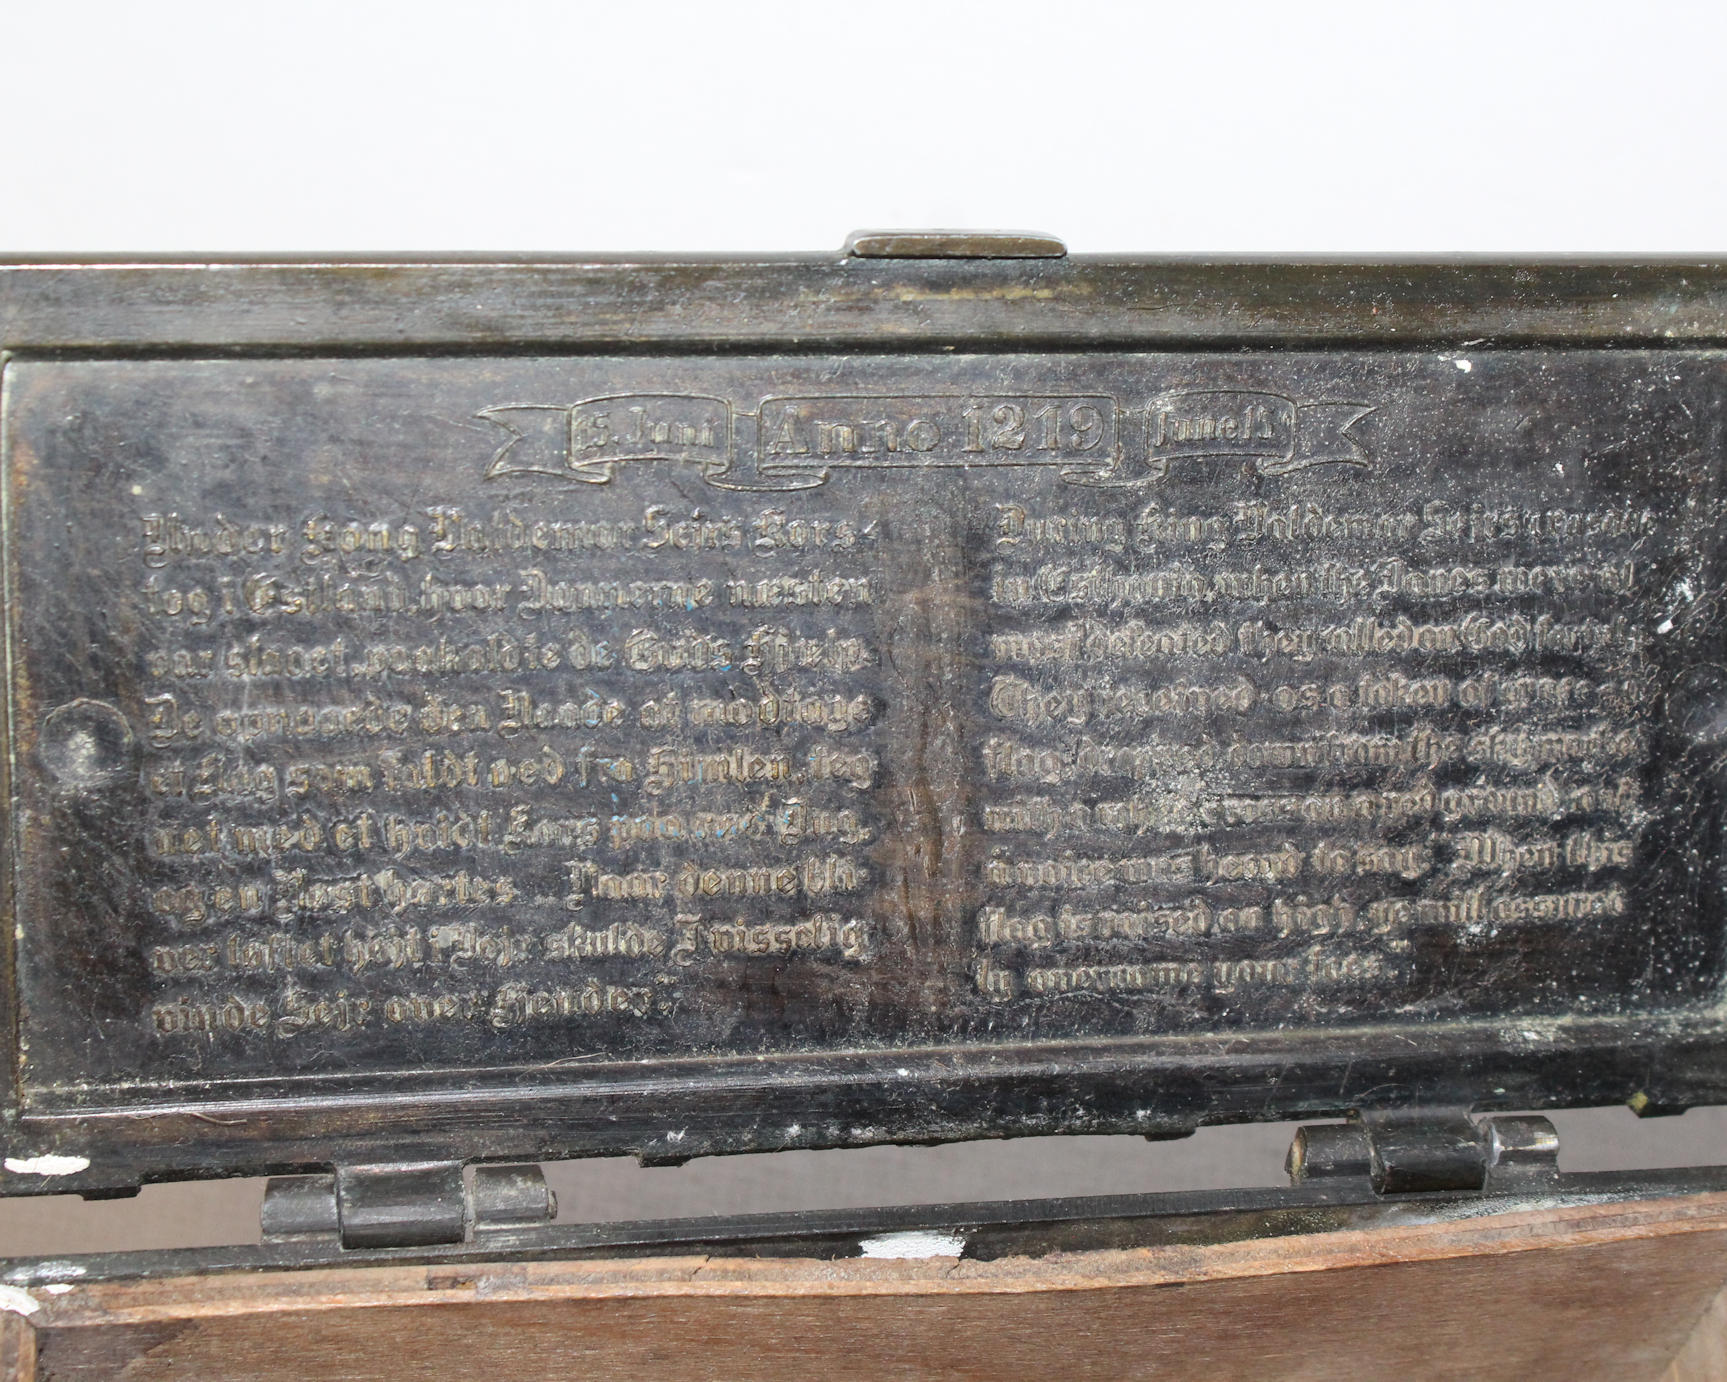 15. Juni Anno 1219 June 15
Under Kong Valdemar Sejrs Kors-
tog i Estland, hvor Dannerne næsten
var slaaet, paakaldte de Guds Hjielp.
De opnaaede den Naade at modtage
et Flag som faldt ned fra Himlen, teg
net med et hvidt Kors paa rød Bug,
og en Røst hørtes "Naar denne bli-
ver løftet højt Vejr skulde I visselig
vinde Sejr over Fjender."
During King Valdemar Sejrs crusade
in Esthonia, when the Danes were al
most defeated they called on God for
They received as a token of grace
flag, dropped down from the sky marked
with a white cross on a red ground
a voice was heard to say: When this
flag is raised on high ye will assured
ly overcome your foes.